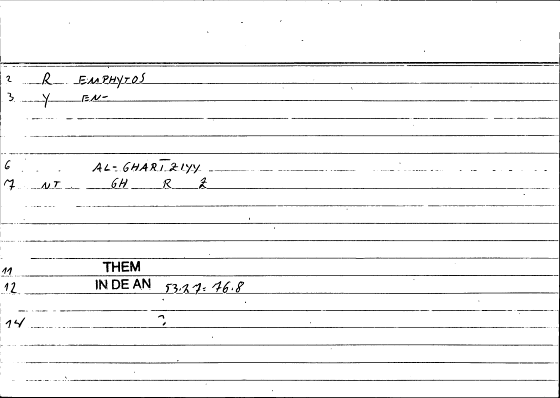 2 R EMPHYTOS
3 Y EN-
6 AL-GHARĪZIYY
7 NT GH R Z
11 THEM
12 IN DE AN 53.27: 76.8
14 ?